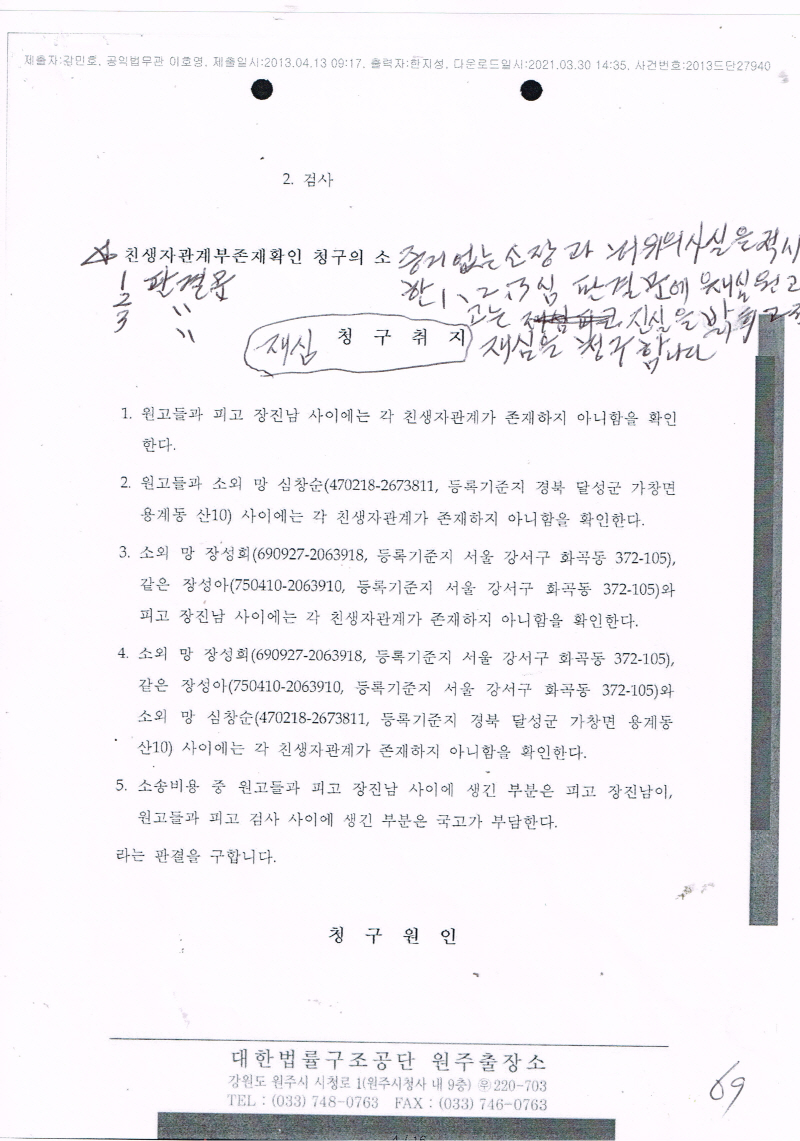 제출자:강민호, 공익법무관 이호영, 제출일시:2013.04.13 09:17, 출력자:한지성, 다운로드일시:2021.03.30 14:35, 사건번호:2013드단27940
2. 검사
친생자관계부존재확인 청구의 소 증거없는 소장과 허위의사실을 적시
1 판결문 한 1、2、3심 판결문에 재심원고
2 〃 고는 진실을 밝히고저
3 〃
재심 청 구 취 지 재심을 청구합니다
1. 원고들과 피고 장진남 사이에는 각 친생자관계가 존재하지 아니함을 확인
한다.
2. 원고들과 소외 망 심창순(470218-2673811, 등록기준지 경북 달성군 가창면
용계동 산10) 사이에는 각 친생자관계가 존재하지 아니함을 확인한다.
3. 소외 망 장성희(690927-2063918, 등록기준지 서울 강서구 화곡동 372-105),
같은 장성아(750410-2063910, 등록기준지 서울 강서구 화곡동 372-105)와
피고 장진남 사이에는 각 친생자관계가 존재하지 아니함을 확인한다.
4. 소외 망 장성희(690927-2063918, 등록기준지 서울 강서구 화곡동 372-105),
같은 장성아(750410-2063910, 등록기준지 서울 강서구 화곡동 372-105)와
소외 망 심창순(470218-2673811, 등록기준지 경북 달성군 가창면 용계동
산10) 사이에는 각 친생자관계가 존재하지 아니함을 확인한다.
5. 소송비용 중 원고들과 피고 장진남 사이에 생긴 부분은 피고 장진남이,
원고들과 피고 검사 사이에 생긴 부분은 국고가 부담한다.
라는 판결을 구합니다.
청 구 원 인
대한법률구조공단 원주출장소
강원도 원주시 시청로 1(원주시청사 내 9층) ㉾220-703
TEL : (033) 748-0763 FAX : (033) 746-0763
69
4 / 16